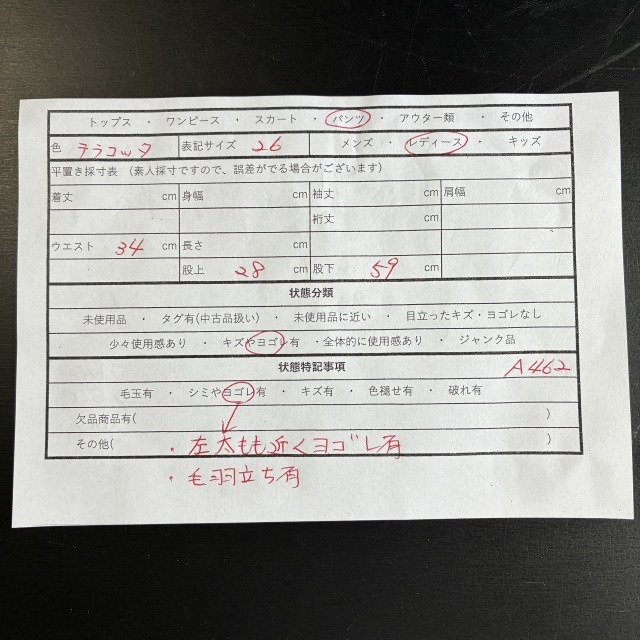 トップス ・ ワンピース ・ スカート ・ パンツ ・ アウター類 ・ その他
色 テラコッタ 表記サイズ 26 メンズ ・ レディース ・ キッズ
平置き採寸表 （素人採寸ですので、誤差がでる場合がございます）
着丈 cm 身幅 cm 袖丈 cm 肩幅 cm
裄丈 cm
ウエスト 34 cm 長さ cm
股上 28 cm 股下 59 cm
状態分類
未使用品 ・ タグ有(中古品扱い) ・ 未使用品に近い ・ 目立ったキズ・ヨゴレなし
少々使用感あり ・ キズやヨゴレ有 ・全体的に使用感あり ・ ジャンク品
状態特記事項 A462
毛玉有 ・ シミやヨゴレ有 ・ キズ有 ・ 色褪せ有 ・ 破れ有
欠品商品有( )
その他( ・左太もも近くヨゴレ有 )
・毛羽立ち有